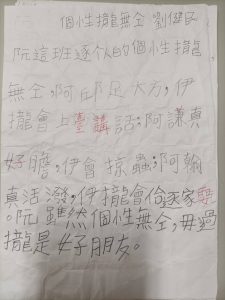 個性攏無仝 劉健民
阮這班逐个人的個性攏
無仝,阿邱足大方,伊
攏會上臺講話;阿謙真
好膽,伊會掠蟲;阿翰
真活潑,伊攏會佮逐家
。阮雖然個性無仝,毋過
攏是好朋友。